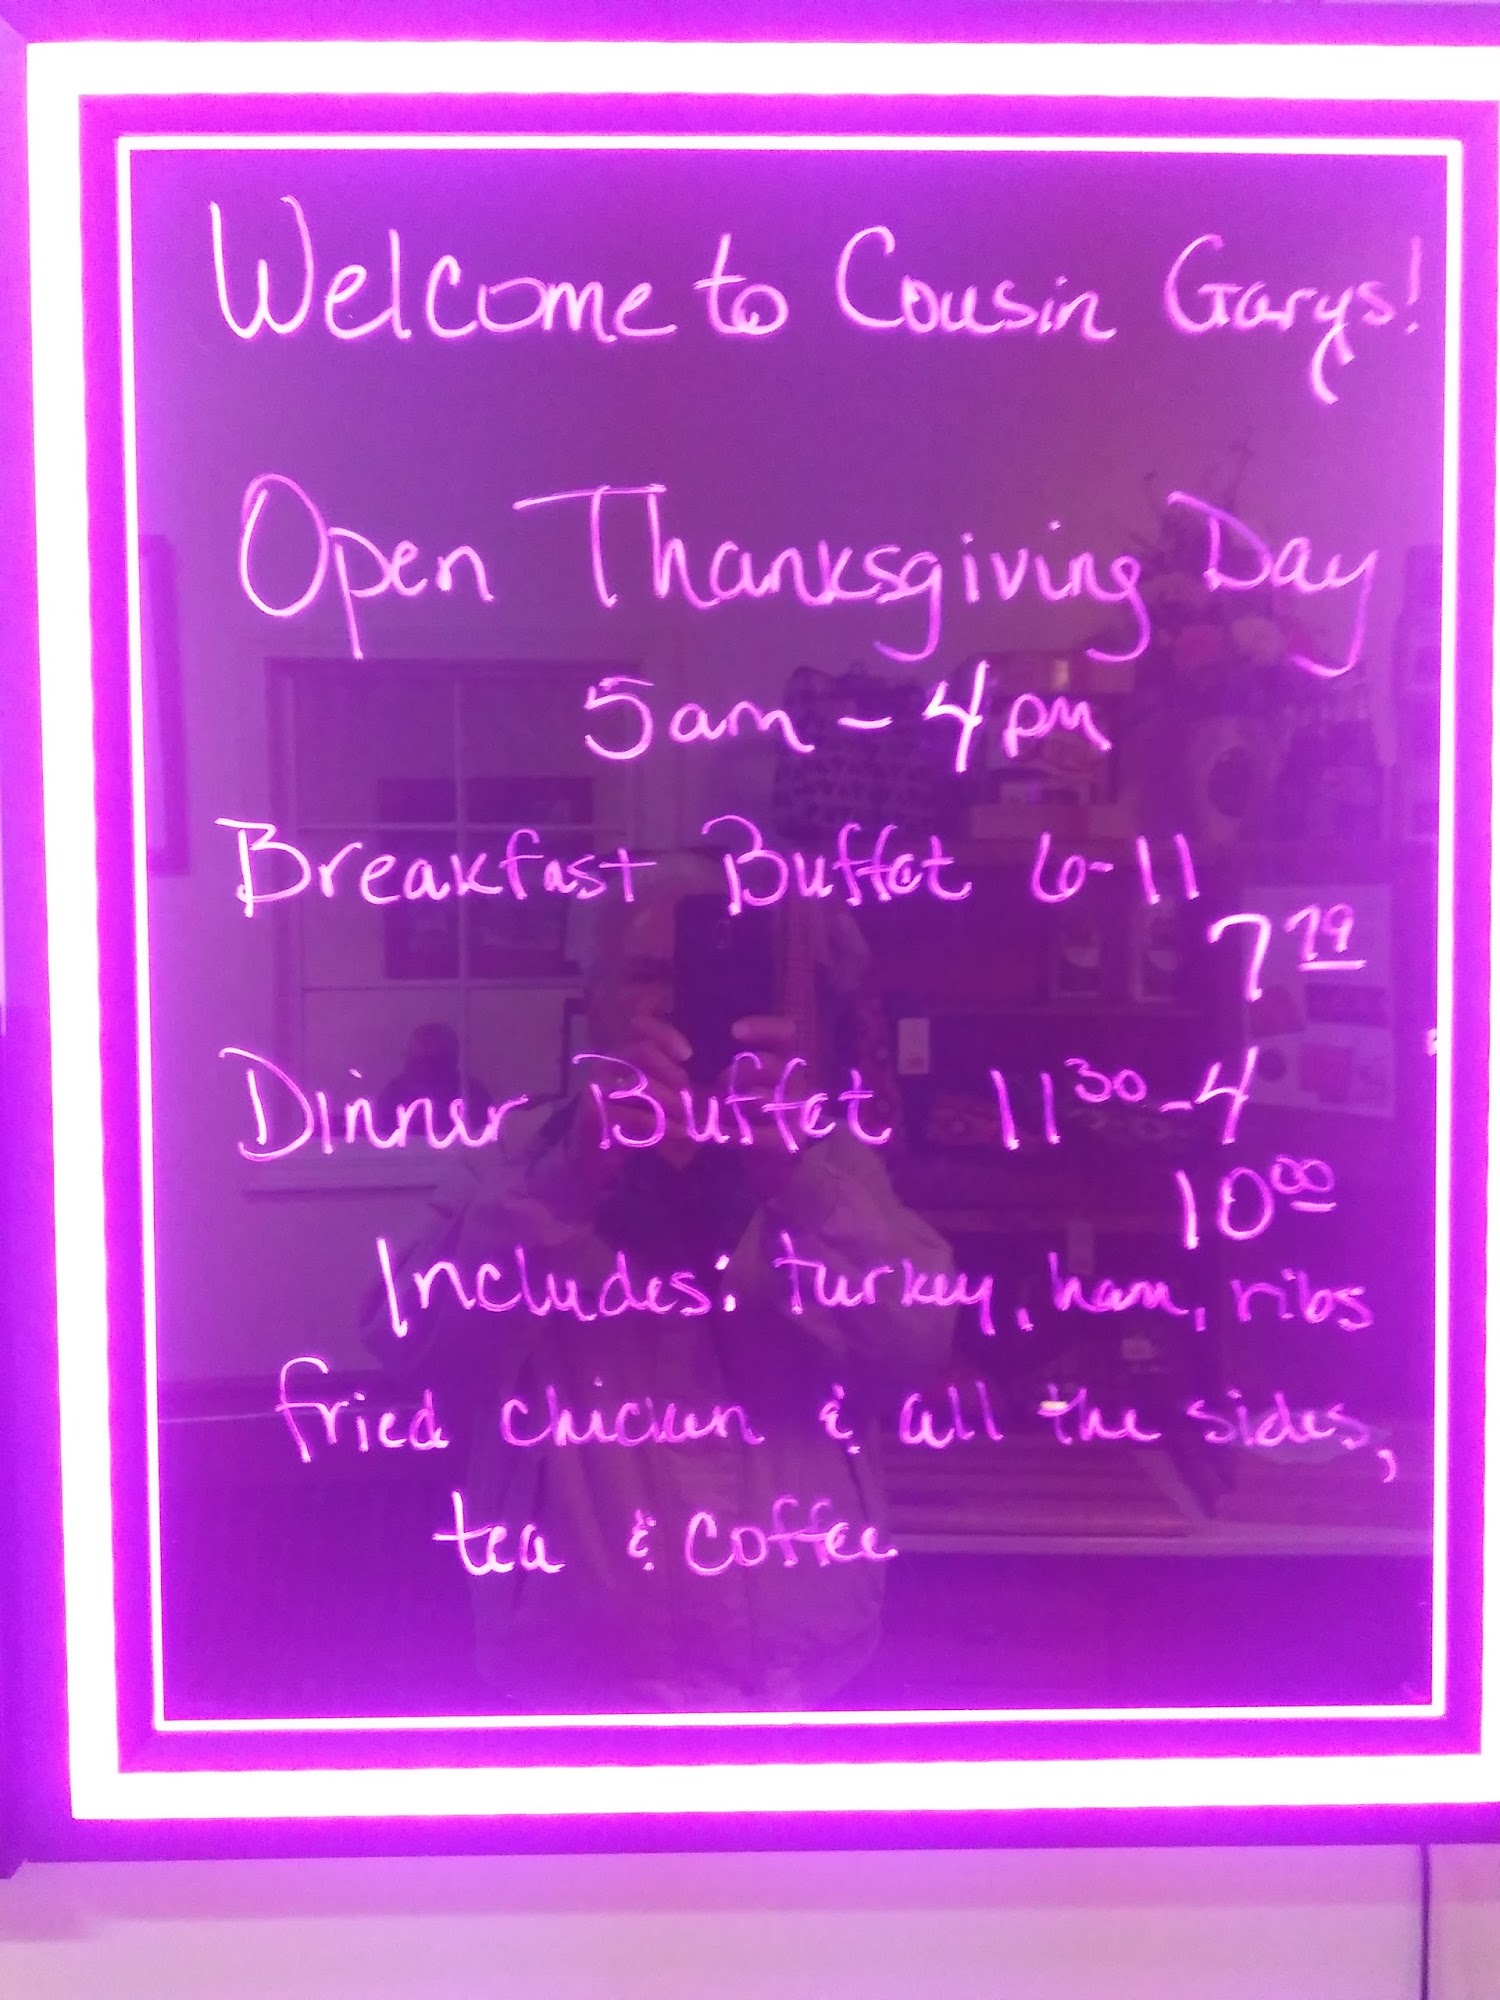 Welcome to Cousin Garys!
Open Thanksgiving Day
5am - 4pm
Breakfast Buffet 6-11
7 79
Dinner Buffet 11 30 - 4
10 00
Includes: turkey, ham, ribs
fried chicken & all the sides,
tea & coffee